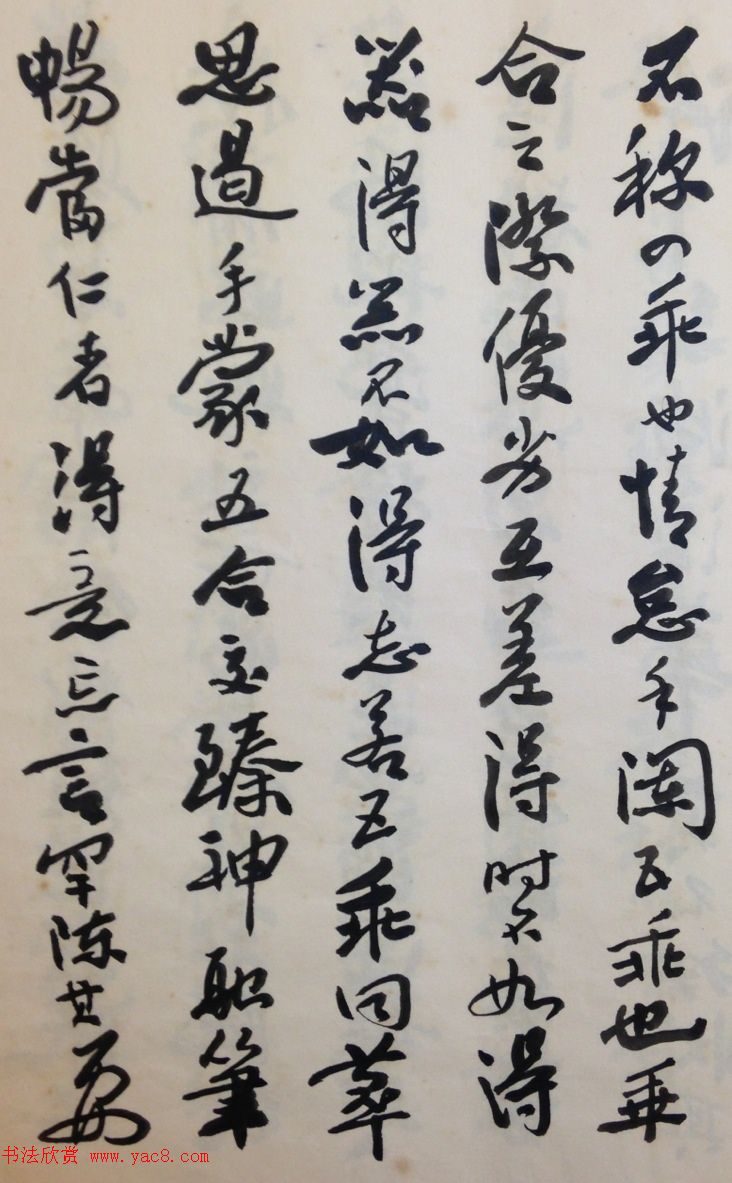 不称四乖也情怠手阑五乖也乖
合之際優劣互差得时不如得
器得器不如得志若五乖同萃
思遏手蒙五合交臻神融筆
暢當仁者得意忘言罕陳其要
书法欣赏 www.yac8.com